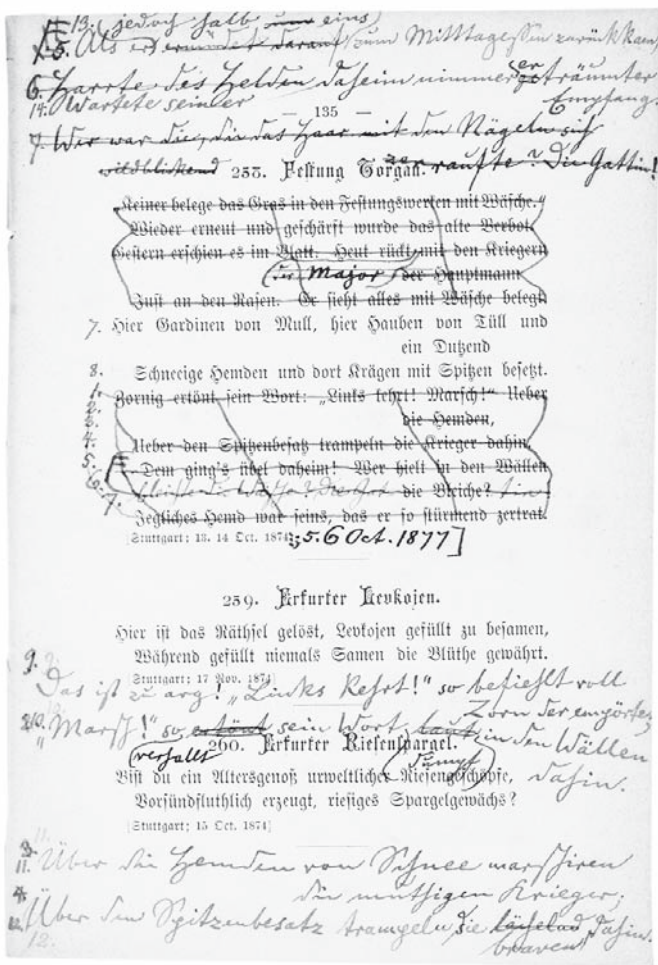 13. (jedoch halb eins)
5. Als er ermüdet darauf zum Mittagessen zurück kam,
6. Harrte des Helden daheim nimmer erträumter
Empfang.
14. Wartete sein er
— 135 —
7. Wer war die, die das Haar mit den Nägeln sich
wildblickend zerraufte? Die Gattin!
258. Festung Torgau.
„Keiner belege das Gras in den Festungswerken mit Wäsche.“
Wieder erneut und geschärft wurde das alte Verbot.
Gestern erschien es im Blatt. Heut rückt mit den Kriegern
(ein Major) der Hauptmann
Just an den Rasen. Er sieht alles mit Wäsche belegt.
7. Hier Gardinen von Mull, hier Hauben von Tüll und
ein Dutzend
8. Schneeige Hemden und dort Krägen mit Spitzen besetzt.
1. Zornig ertönt sein Wort: „Links kehrt! Marsch!“ Ueber
2.
3. die Hemden,
4. Ueber den Spitzenbesatz trampeln die Krieger dahin.
5. Dem ging's übel daheim! Wer hielt in den Wällen
6. die Bleiche?
7. Jegliches Hemd war seins, das er so stürmend zertrat.
[Stuttgart; 13. 14 Oct. 1874; 5. 6 Oct. 1877]
259. Erfurter Levkojen.
Hier ist das Räthsel gelöst, Levkojen gefüllt zu besamen,
Während gefüllt niemals Samen die Blüthe gewährt.
[Stuttgart; 17 Nov. 1874]
9. Das ist zu arg! „Links kehrt!“ so befiehlt voll
Zorn der empörte,
10. „Marsch!“ so ertönt sein Wort laut, in den Wällen
(verhallt (dumpf) dahin.
260. Erfurter Riesenspargel.
Bist du ein Altersgenoß urweltlicher Riesengeschöpfe,
Vorsündfluthlich erzeugt, riesiges Spargelgewächs?
[Stuttgart; 15 Oct. 1874]
11. Über die Hemden von Schnee marschiren
die muthigen Krieger;
12. Über den Spitzenbesatz trampeln sie lächelnd dahin.
braven
12.